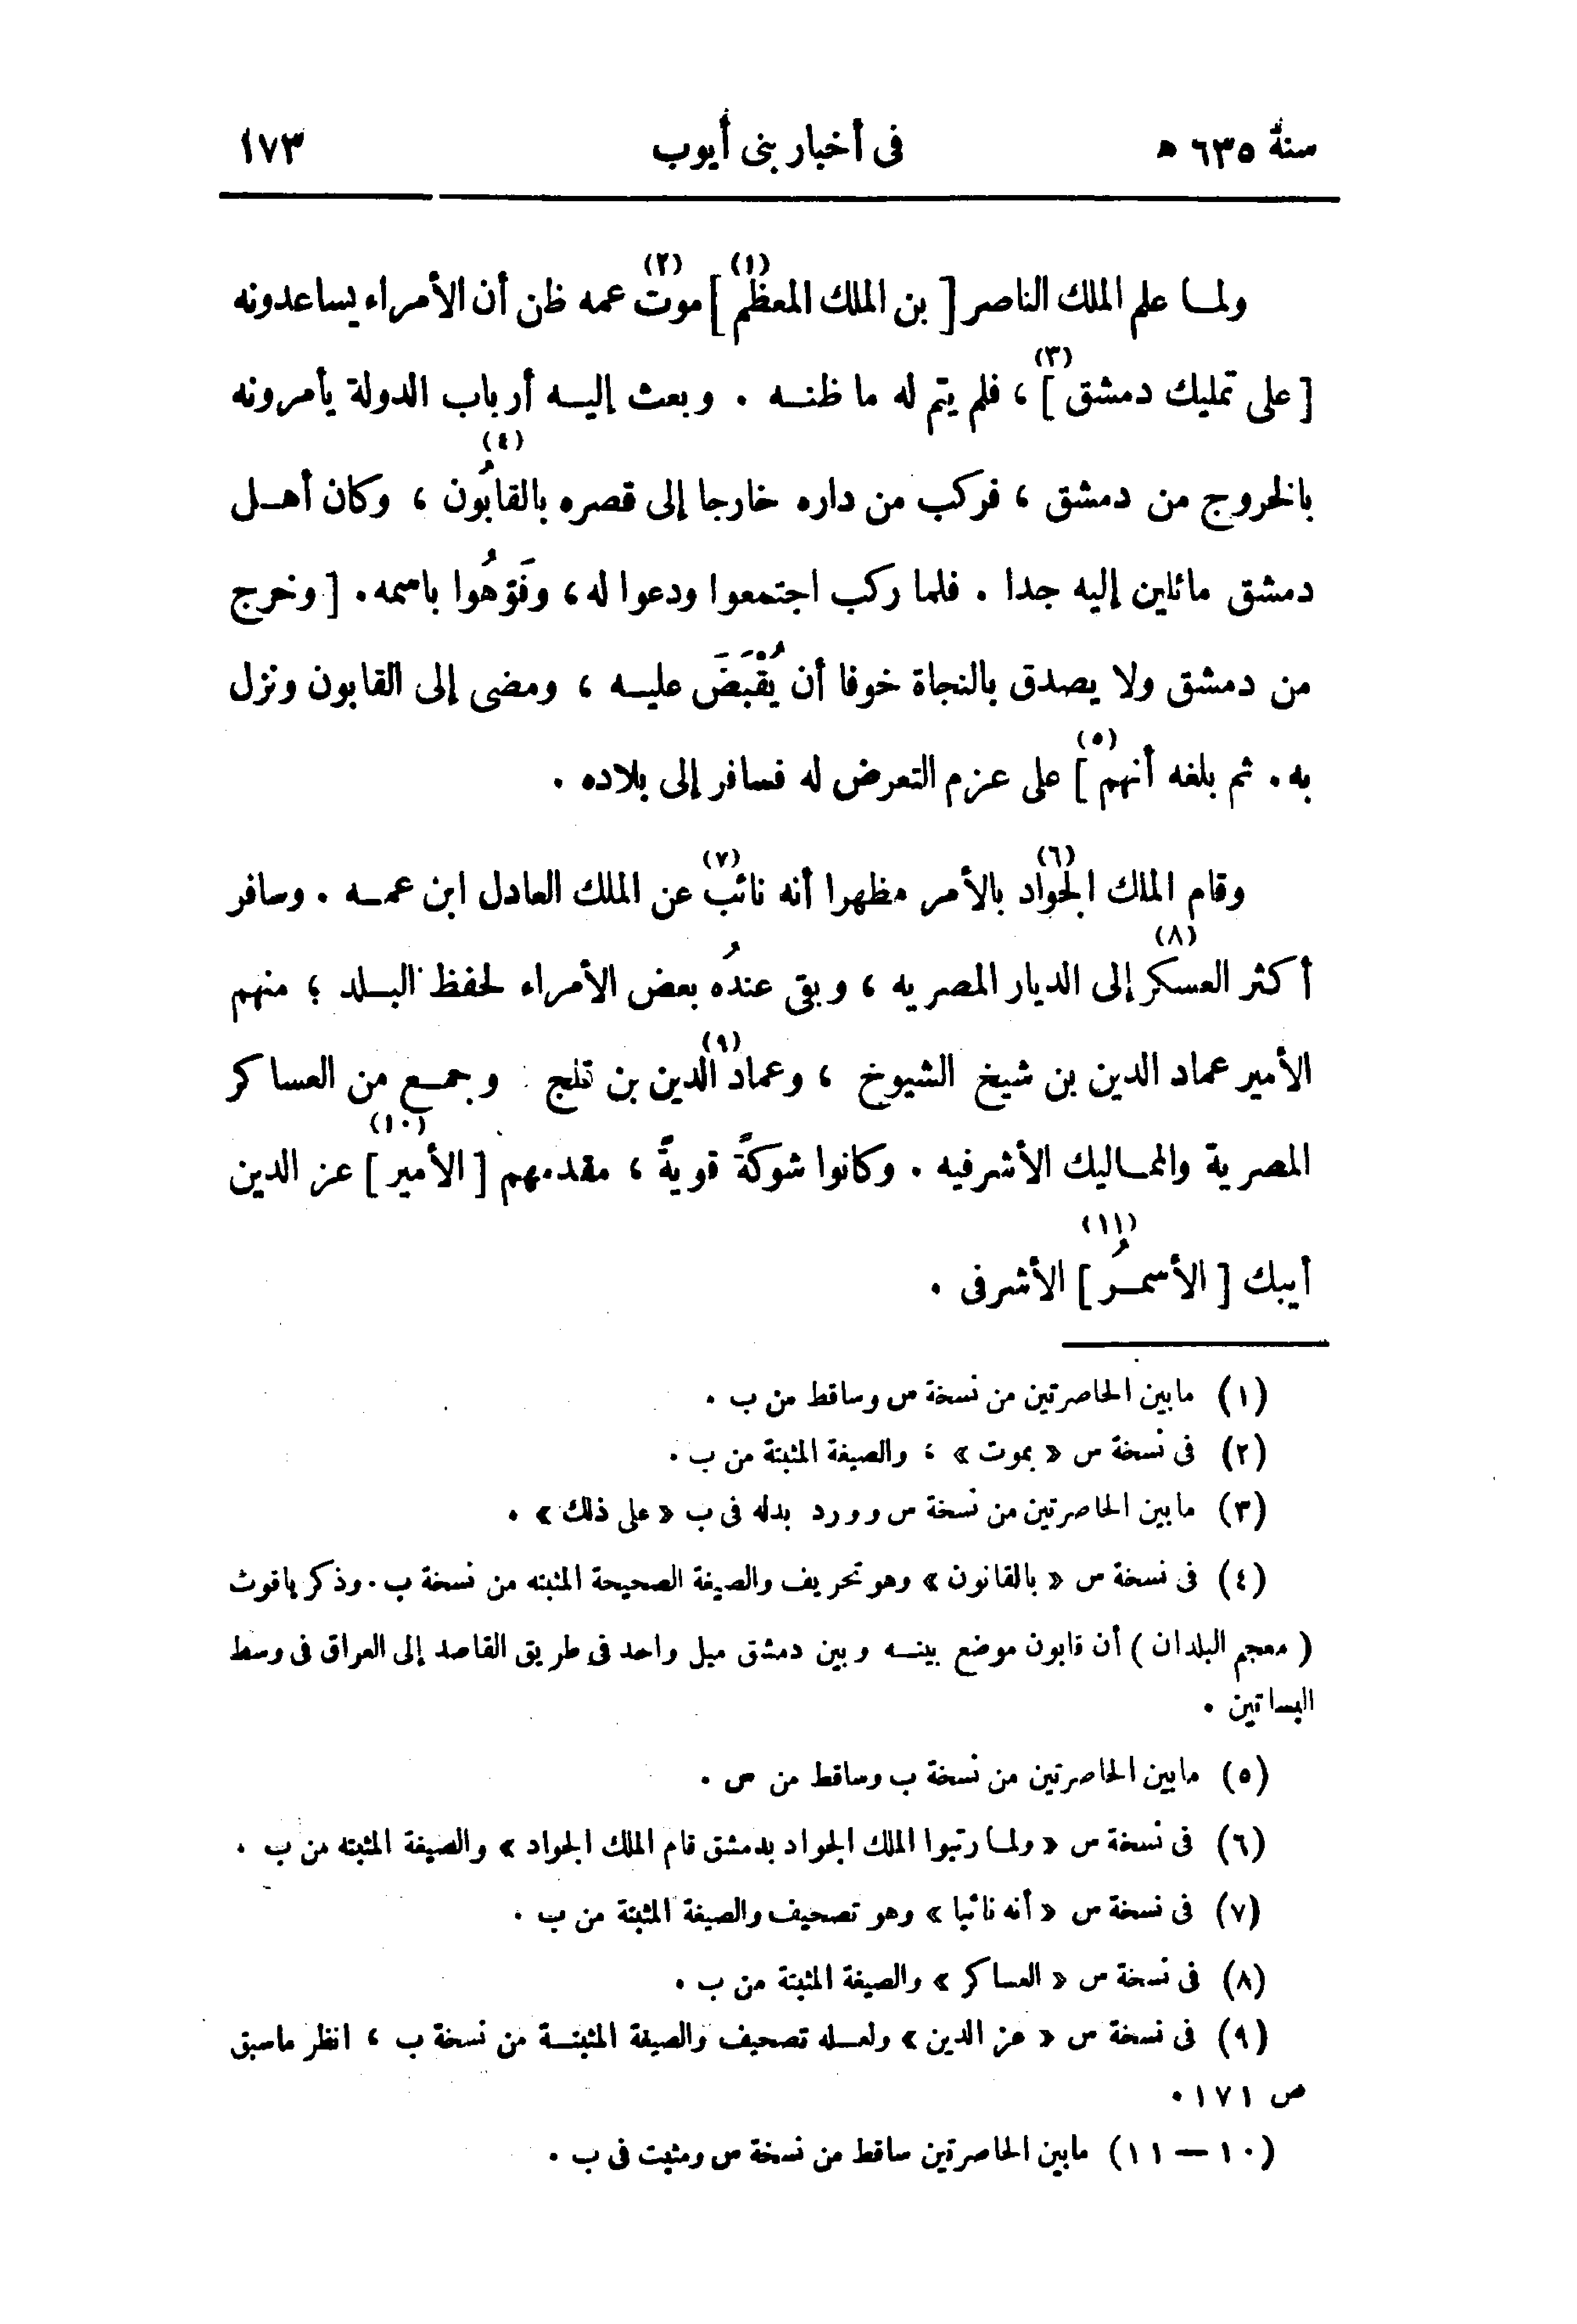 سنة ٦٣٥ هـ فى أخبار بنى أيوب ١٧٣
ولمـا علم الملك الناصر [ بن الملك المعظم (١) ] موت (٢) عمه ظن أن الأمراء يساعدونه
[ على تمليك دمشق (٣) ] ، فلم يتم له ما ظنـه . وبعث إليـه أرباب الدولة يأمرونه
بالخروج من دمشق ، فركب من داره خارجا إلى قصره بالقابُون (٤) ، وكان أهـل
دمشق مائلين إليه جدا . فلما ركب اجتمعوا ودعوا له ، وفَوَّهُوا باسمه . [ وخرج
من دمشق ولا يصدق بالنجاة خوفا أن يُقْبَضَ عليـه ، ومضى إلى القابون ونزل
به . ثم بلغه أنهم (٥) ] على عزم التعرض له فسافر إلى بلاده .
وقام الملك الجواد (٦) بالأمر مظهرا أنه نائب (٧) عن الملك العادل ابن عمـه . وسافر
أكثر العسكر (٨) إلى الديار المصريه ، وبقى عندُه بعض الأمراء لحفظ البـلد ؛ منهم
الأمير عماد الدين بن شيخ الشيوخ ، وعماد (٩) الدين بن قلج . وجمـع من العساكر
المصرية والممـاليك الأشرفيه . وكانوا شوكةً قويةً ، مقدمهم [ الأمير (١٠) ] عز الدين
أيبك [ الأسمـرُ (١١) ] الأشرفى .
(١) مابين الحاصرتين من نسخة س وساقط من ب .
(٢) فى نسخة س « بموت » ، والصيغة المثبتة من ب .
(٣) مابين الحاصرتين من نسخة س وورد بدله فى ب « على ذلك » .
(٤) فى نسخة س « بالقانون » وهو تحريف والصيغة الصحيحة المثبته من نسخة ب . وذكر ياقوت
( معجم البلدان ) أن قابون موضع بينـه وبين دمشق ميل واحد فى طريق القاصد إلى العراق فى وسط
البساتين .
(٥) مابين الحاصرتين من نسخة ب وساقط من س .
(٦) فى نسخة س « ولمـا رتبوا الملك الجواد بدمشق قام الملك الجواد » والصيغة المثبته من ب .
(٧) فى نسخة س « أنه نائبا » وهو تصحيف والصيغة المثبتة من ب .
(٨) فى نسخة س « العساكر » والصيغة المثبتة من ب .
(٩) فى نسخة س « عز الدين » ولعـله تصحيف والصيغة المثبتـة من نسخة ب ، انظر ماسبق
ص ١٧١ .
(١٠ — ١١) مابين الحاصرتين ساقط من نسخة س ومثبت فى ب .